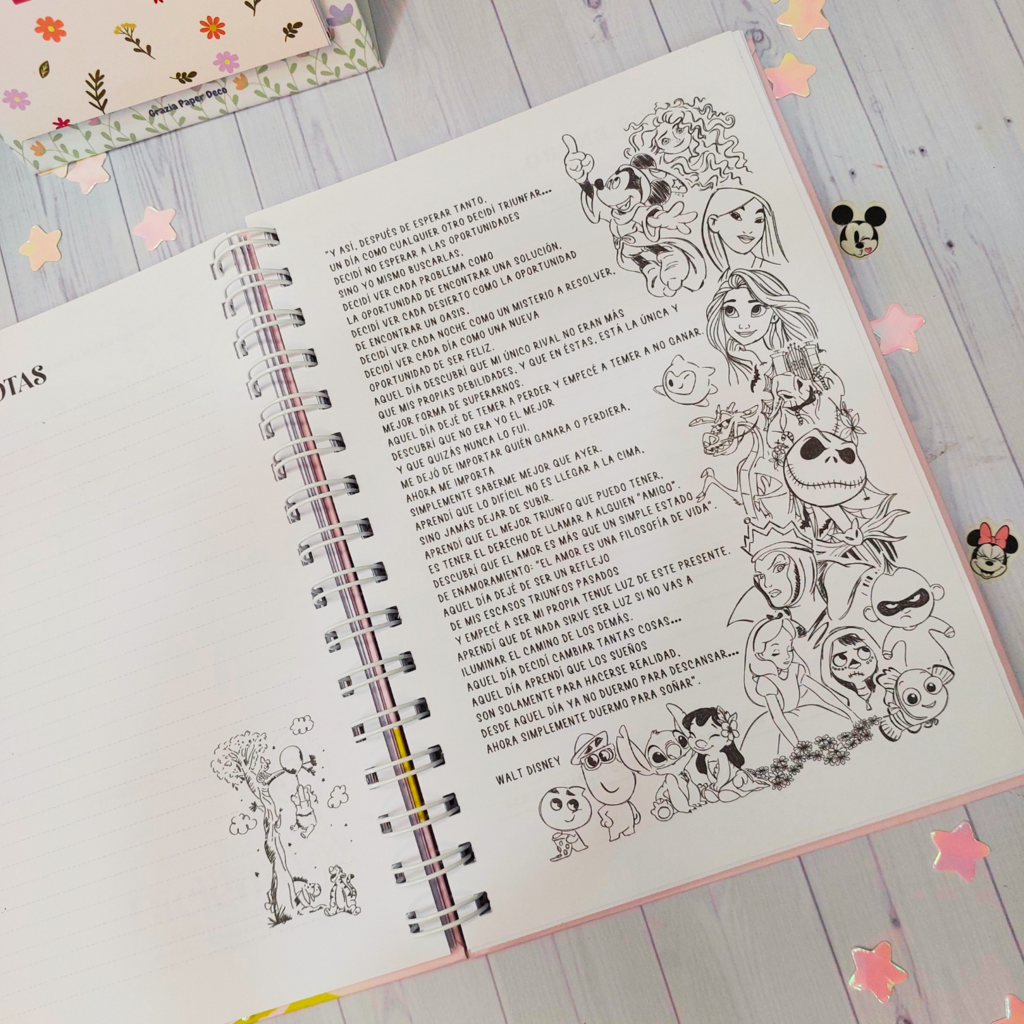 Grazia Paper Deco
OTAS
"Y ASÍ, DESPUÉS DE ESPERAR TANTO,
UN DÍA COMO CUALQUIER OTRO DECIDÍ TRIUNFAR...
DECIDÍ NO ESPERAR A LAS OPORTUNIDADES
SINO YO MISMO BUSCARLAS,
DECIDÍ VER CADA PROBLEMA COMO
LA OPORTUNIDAD DE ENCONTRAR UNA SOLUCIÓN,
DECIDÍ VER CADA DESIERTO COMO LA OPORTUNIDAD
DE ENCONTRAR UN OASIS,
DECIDÍ VER CADA NOCHE COMO UN MISTERIO A RESOLVER,
DECIDÍ VER CADA DÍA COMO UNA NUEVA
OPORTUNIDAD DE SER FELIZ.
AQUEL DÍA DESCUBRÍ QUE MI ÚNICO RIVAL NO ERAN MÁS
QUE MIS PROPIAS DEBILIDADES, Y QUE EN ÉSTAS, ESTÁ LA ÚNICA Y
MEJOR FORMA DE SUPERARNOS.
AQUEL DÍA DEJÉ DE TEMER A PERDER Y EMPECÉ A TEMER A NO GANAR,
DESCUBRÍ QUE NO ERA YO EL MEJOR
Y QUE QUIZÁS NUNCA LO FUI.
ME DEJÓ DE IMPORTAR QUIÉN GANARA O PERDIERA,
AHORA ME IMPORTA
SIMPLEMENTE SABERME MEJOR QUE AYER.
APRENDÍ QUE LO DIFÍCIL NO ES LLEGAR A LA CIMA,
SINO JAMÁS DEJAR DE SUBIR.
APRENDÍ QUE EL MEJOR TRIUNFO QUE PUEDO TENER,
ES TENER EL DERECHO DE LLAMAR A ALGUIEN "AMIGO".
DESCUBRÍ QUE EL AMOR ES MÁS QUE UN SIMPLE ESTADO
DE ENAMORAMIENTO: "EL AMOR ES UNA FILOSOFÍA DE VIDA".
AQUEL DÍA DEJÉ DE SER UN REFLEJO
DE MIS ESCASOS TRIUNFOS PASADOS
Y EMPECÉ A SER MI PROPIA TENUE LUZ DE ESTE PRESENTE.
APRENDÍ QUE DE NADA SIRVE SER LUZ SI NO VAS A
ILUMINAR EL CAMINO DE LOS DEMÁS.
AQUEL DÍA DECIDÍ CAMBIAR TANTAS COSAS...
AQUEL DÍA APRENDÍ QUE LOS SUEÑOS
SON SOLAMENTE PARA HACERSE REALIDAD,
DESDE AQUEL DÍA YA NO DUERMO PARA DESCANSAR...
AHORA SIMPLEMENTE DUERMO PARA SOÑAR".
WALT DISNEY